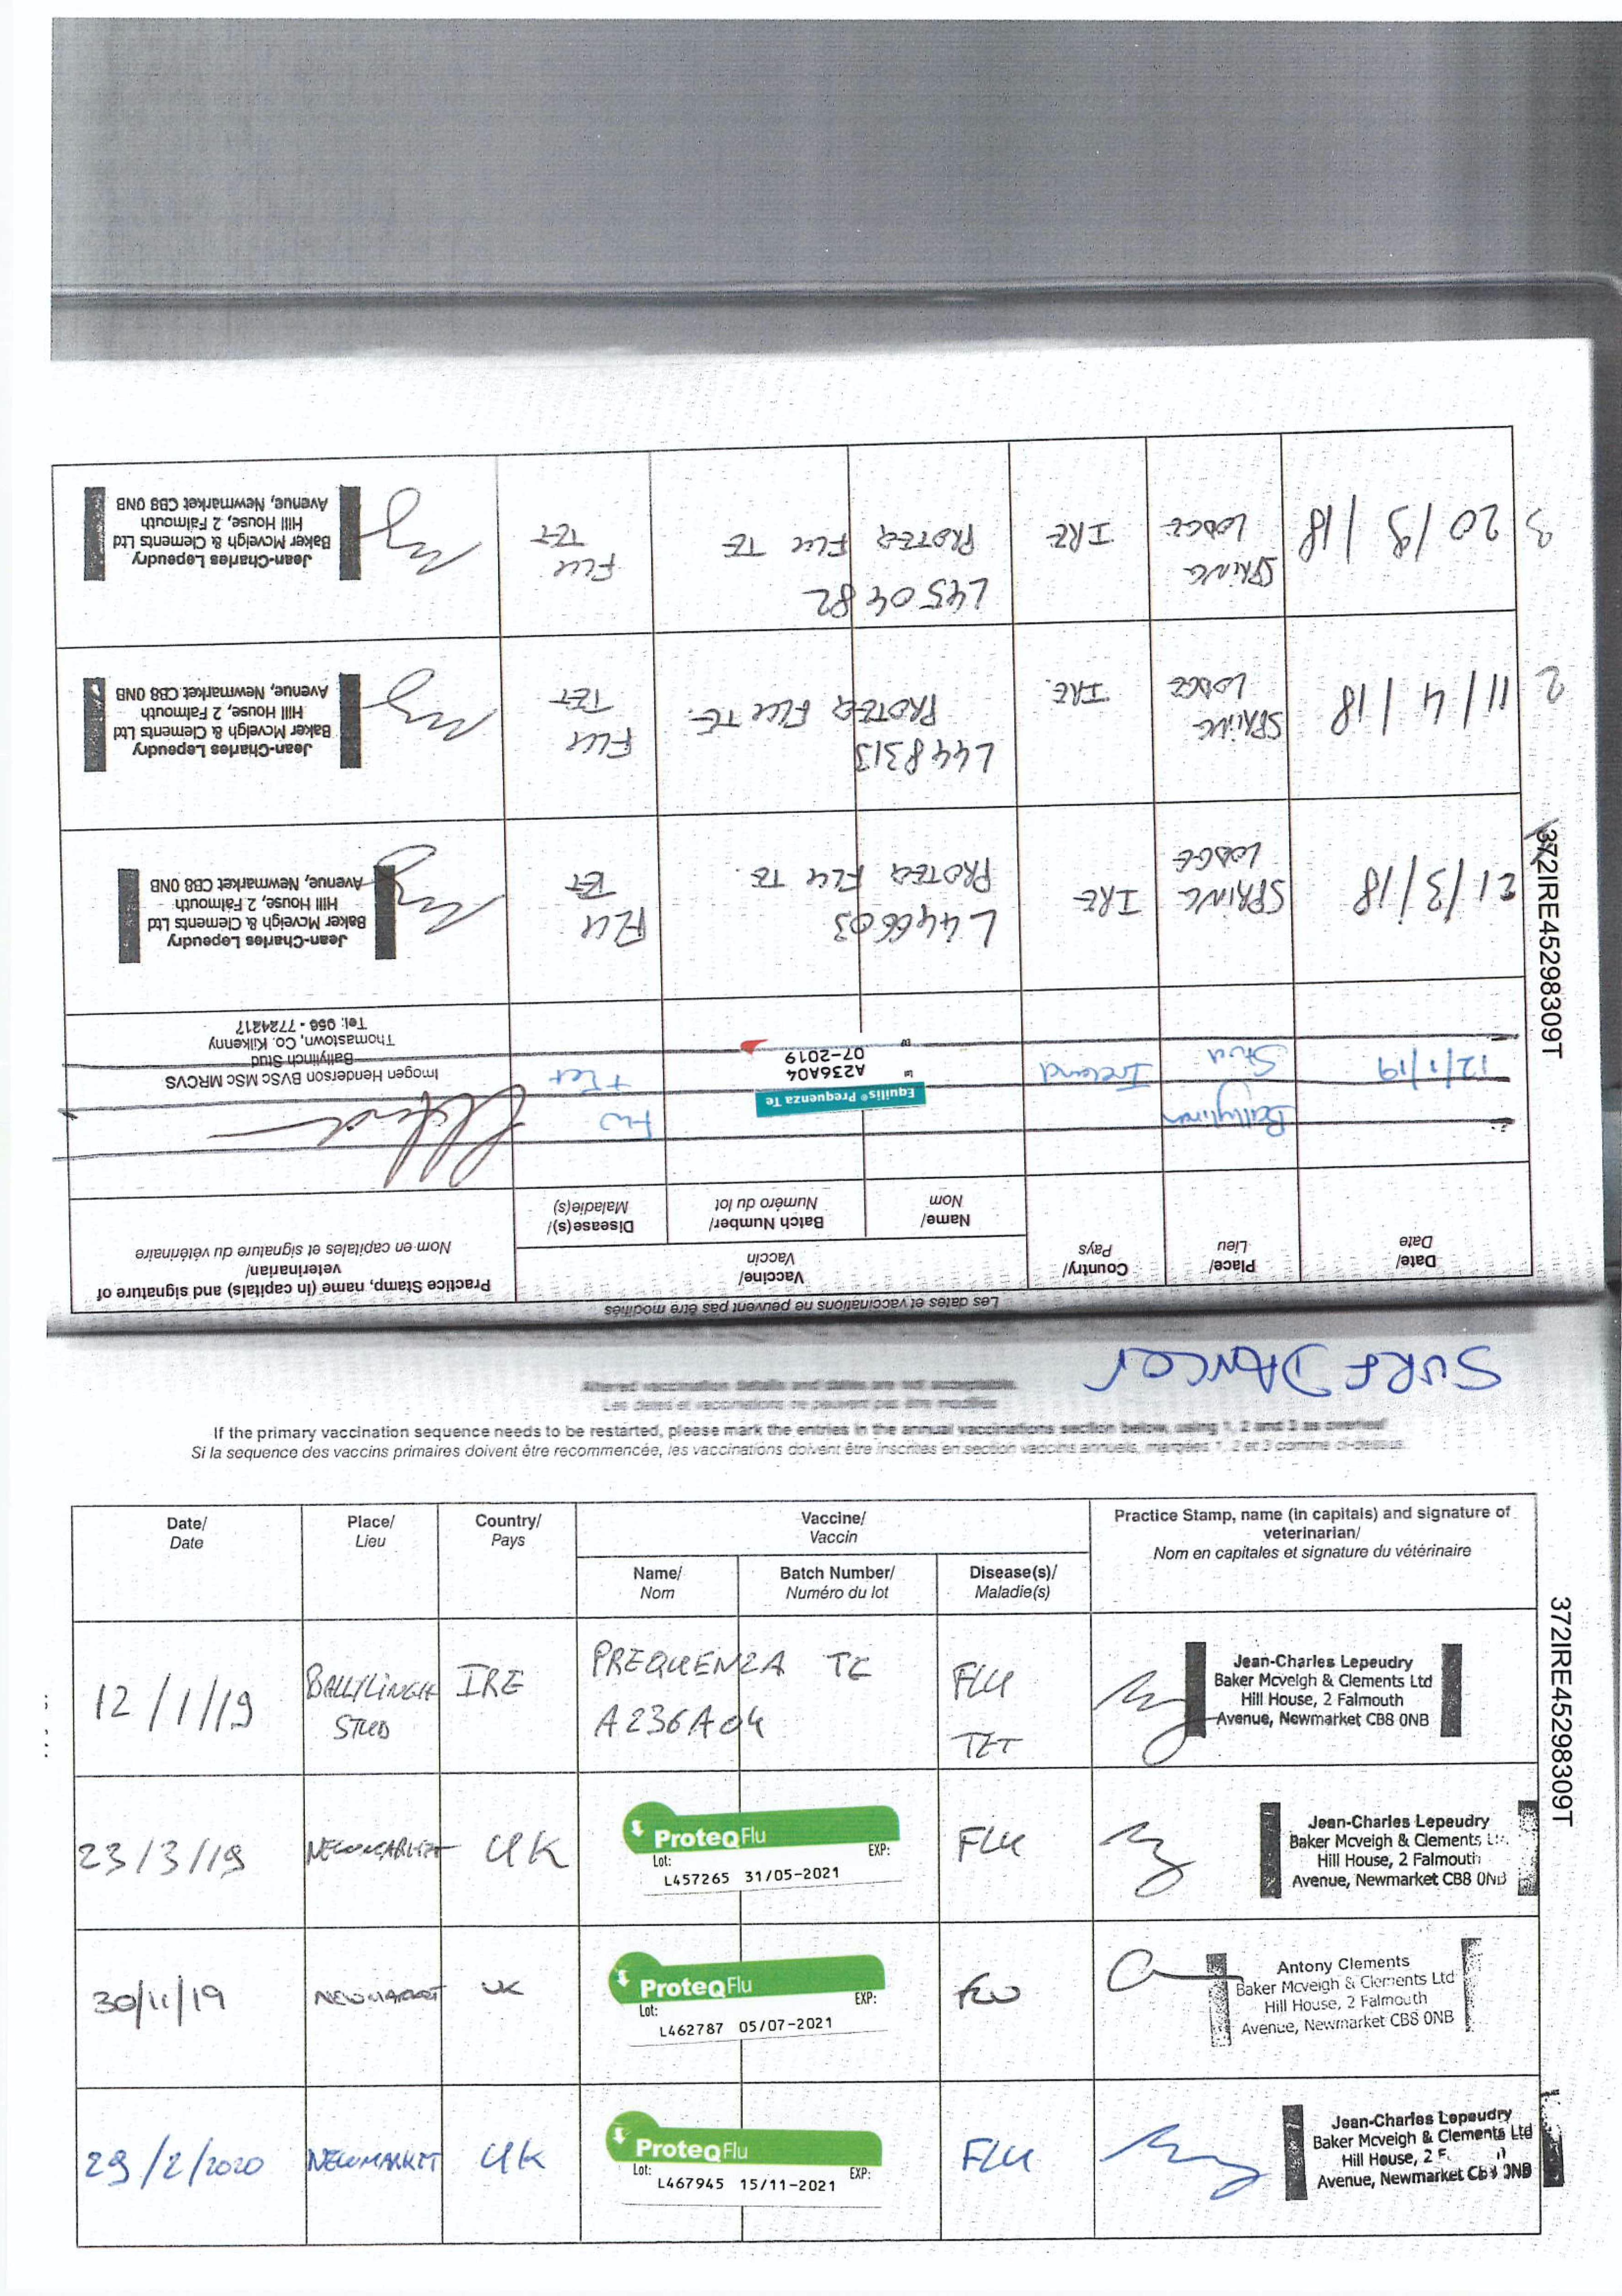 Les dates et vaccinations ne peuvent pas être modifiés
Date/
Date
Place/
Lieu
Country/
Pays
Vaccine/
Vaccin
Name/
Nom
Batch Number/
Numéro du lot
Disease(s)/
Maladie(s)
Practice Stamp, name (in capitals) and signature of
veterinarian/
Nom en capitales et signature du vétérinaire
12/1/19
Ballylinch
Stud
Ireland
Equilis® Prequenza Te
A236A04
07-2019
Flu
Tet
Imogen Henderson BVSc MSc MRCVS
Ballylinch Stud
Thomastown, Co. Kilkenny
Tel: 056 - 7724217
1
21/3/18
SPRING
LODGE
IRE
L446603
PROTEQ FLU TE.
FLU
TET
Jean-Charles Lepeudry
Baker Mcveigh & Clements Ltd
Hill House, 2 Falmouth
Avenue, Newmarket CB8 0NB
2
11/4/18
SPRING
LODGE
IRE.
L448313
PROTEQ FLU TE.
FLU
TET
Jean-Charles Lepeudry
Baker Mcveigh & Clements Ltd
Hill House, 2 Falmouth
Avenue, Newmarket CB8 0NB
3
20/9/18
SPRING
LODGE
IRE
L450482
PROTEQ FLU TE
FLU
TET
Jean-Charles Lepeudry
Baker Mcveigh & Clements Ltd
Hill House, 2 Falmouth
Avenue, Newmarket CB8 0NB
372IRE45298309T
SURF DANCER
Altered vaccination details and dates are not acceptable.
Les dates et vaccinations ne peuvent pas être modifiés
If the primary vaccination sequence needs to be restarted, please mark the entries in the annual vaccinations section below, using 1, 2 and 3 as overleaf
Si la sequence des vaccins primaires doivent être recommencée, les vaccinations doivent être inscrites en section vaccins annuels, margées 1, 2 et 3 comme ci-dessus.
Date/
Date
Place/
Lieu
Country/
Pays
Vaccine/
Vaccin
Name/
Nom
Batch Number/
Numéro du lot
Disease(s)/
Maladie(s)
Practice Stamp, name (in capitals) and signature of
veterinarian/
Nom en capitales et signature du vétérinaire
12/1/19
BALLYLINCH
STUD
IRE
PREQUENZA TE
A236A04
FLU
TET
Jean-Charles Lepeudry
Baker Mcveigh & Clements Ltd
Hill House, 2 Falmouth
Avenue, Newmarket CB8 0NB
23/3/19
NEWMARKET
UK
ProteqFlu
Lot:
EXP:
L457265 31/05-2021
FLU
Jean-Charles Lepeudry
Baker Mcveigh & Clements
Hill House, 2 Falmouth
Avenue, Newmarket CB8 0NB
30/11/19
NEWMARKET
UK
ProteqFlu
Lot:
EXP:
L462787 05/07-2021
FLU
Antony Clements
Baker Mcveigh & Clements Ltd
Hill House, 2 Falmouth
Avenue, Newmarket CB8 0NB
29/2/2020
NEWMARKET
UK
ProteqFlu
Lot:
EXP:
L467945 15/11-2021
FLU
Jean-Charles Lepeudry
Baker Mcveigh & Clements Ltd
Hill House, 2 F
Avenue, Newmarket CB8 0NB
372IRE45298309T